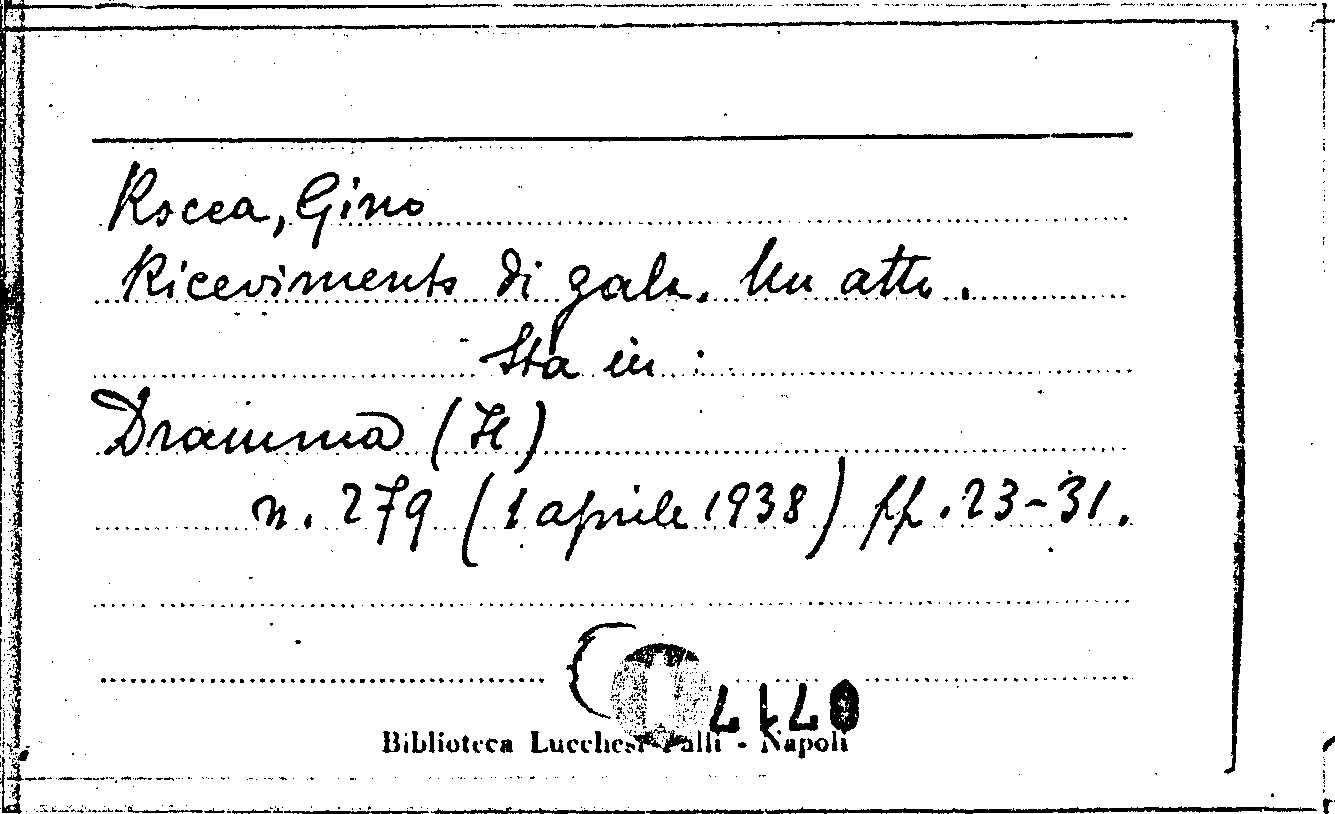 Rocca, Gino
Ricevimento di gala. Un atto.
Sta in :
Dramma (Il)
n. 279 (1 aprile 1938) pp. 23-31.
Biblioteca Lucchesi-Palli - Napoli